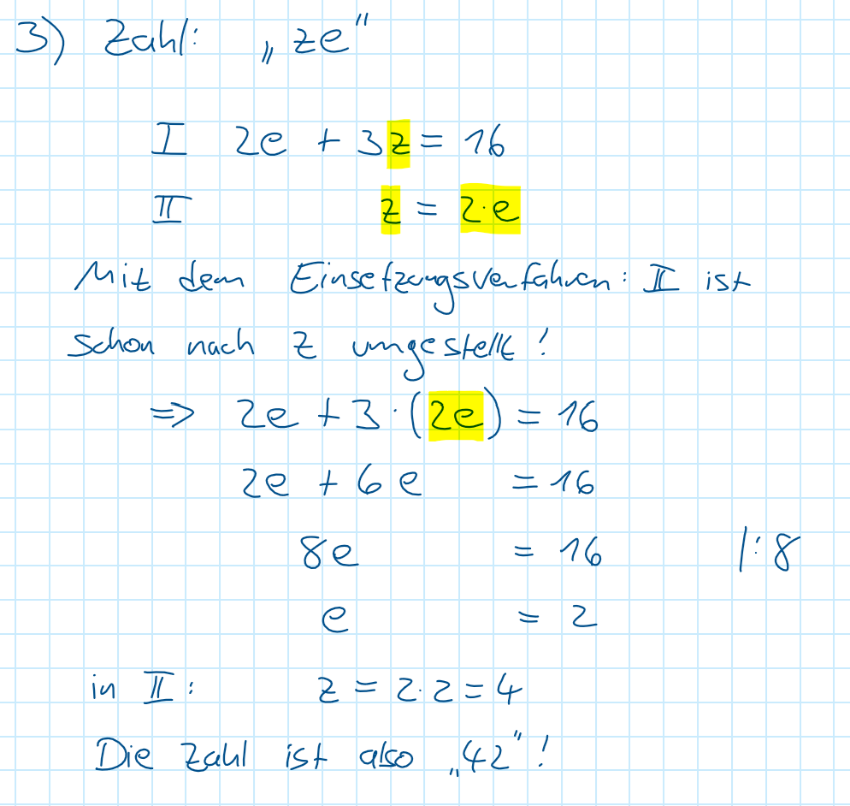 3) Zahl: „ze"
I 2e + 3z = 16
II z = 2·e
Mit dem Einsetzungsverfahren: II ist
schon nach z umgestellt!
=> 2e + 3·(2e) = 16
2e + 6e = 16
8e = 16 |:8
e = 2
in II: z = 2·2 = 4
Die Zahl ist also „42"!